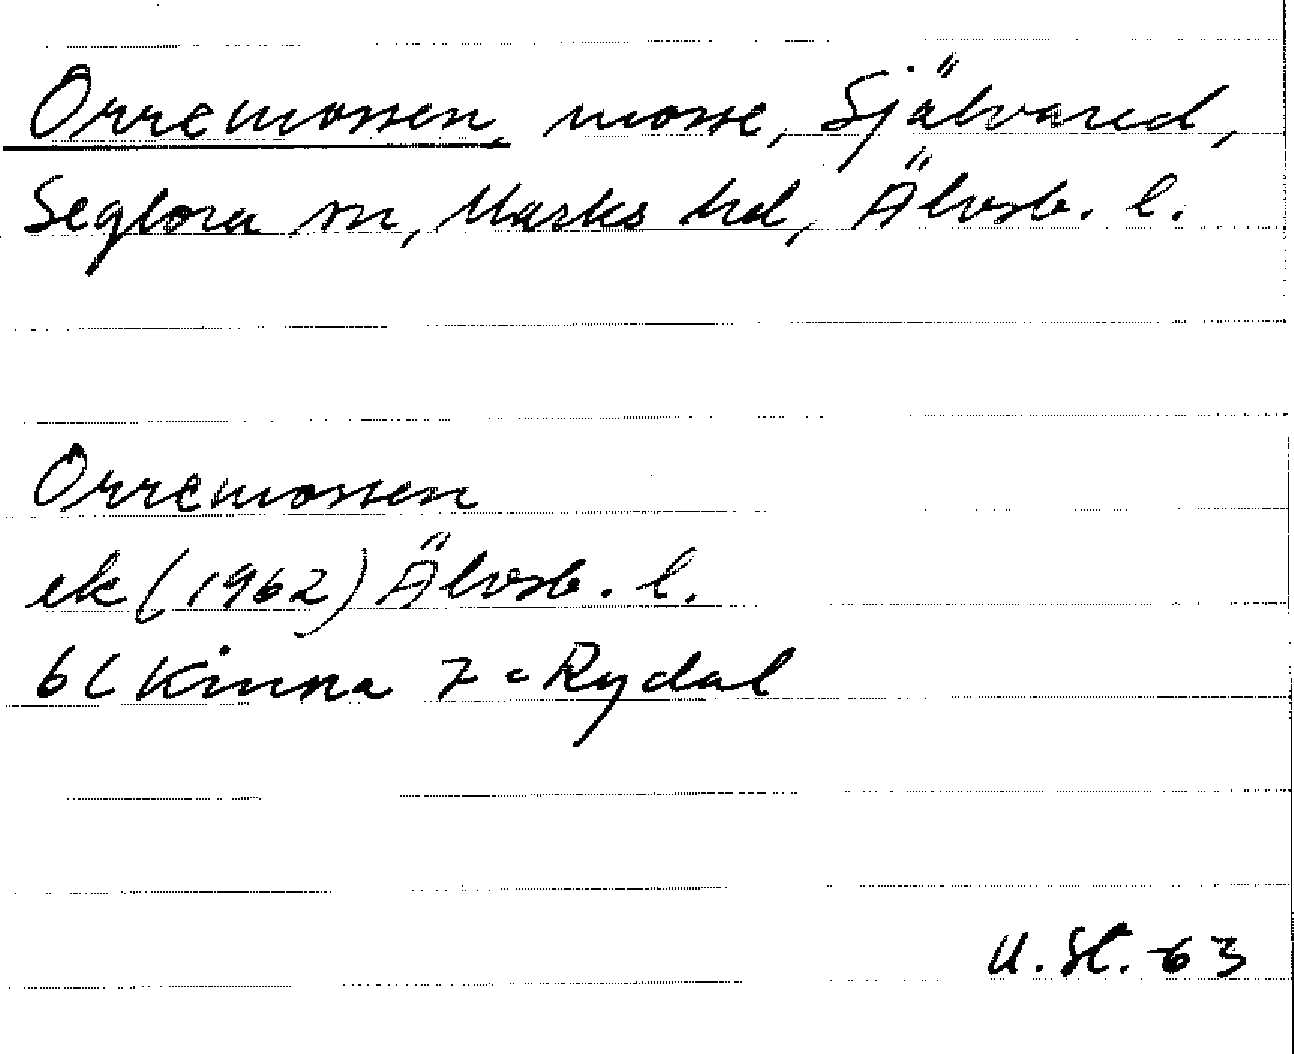 Orremossen, mosse, Självared,
Seglora sn, Marks hd, Älvsb. l.
Orremossen
ek (1962) Älvsb. l.
6C Kinna 7 c Rydal
U. St. -63